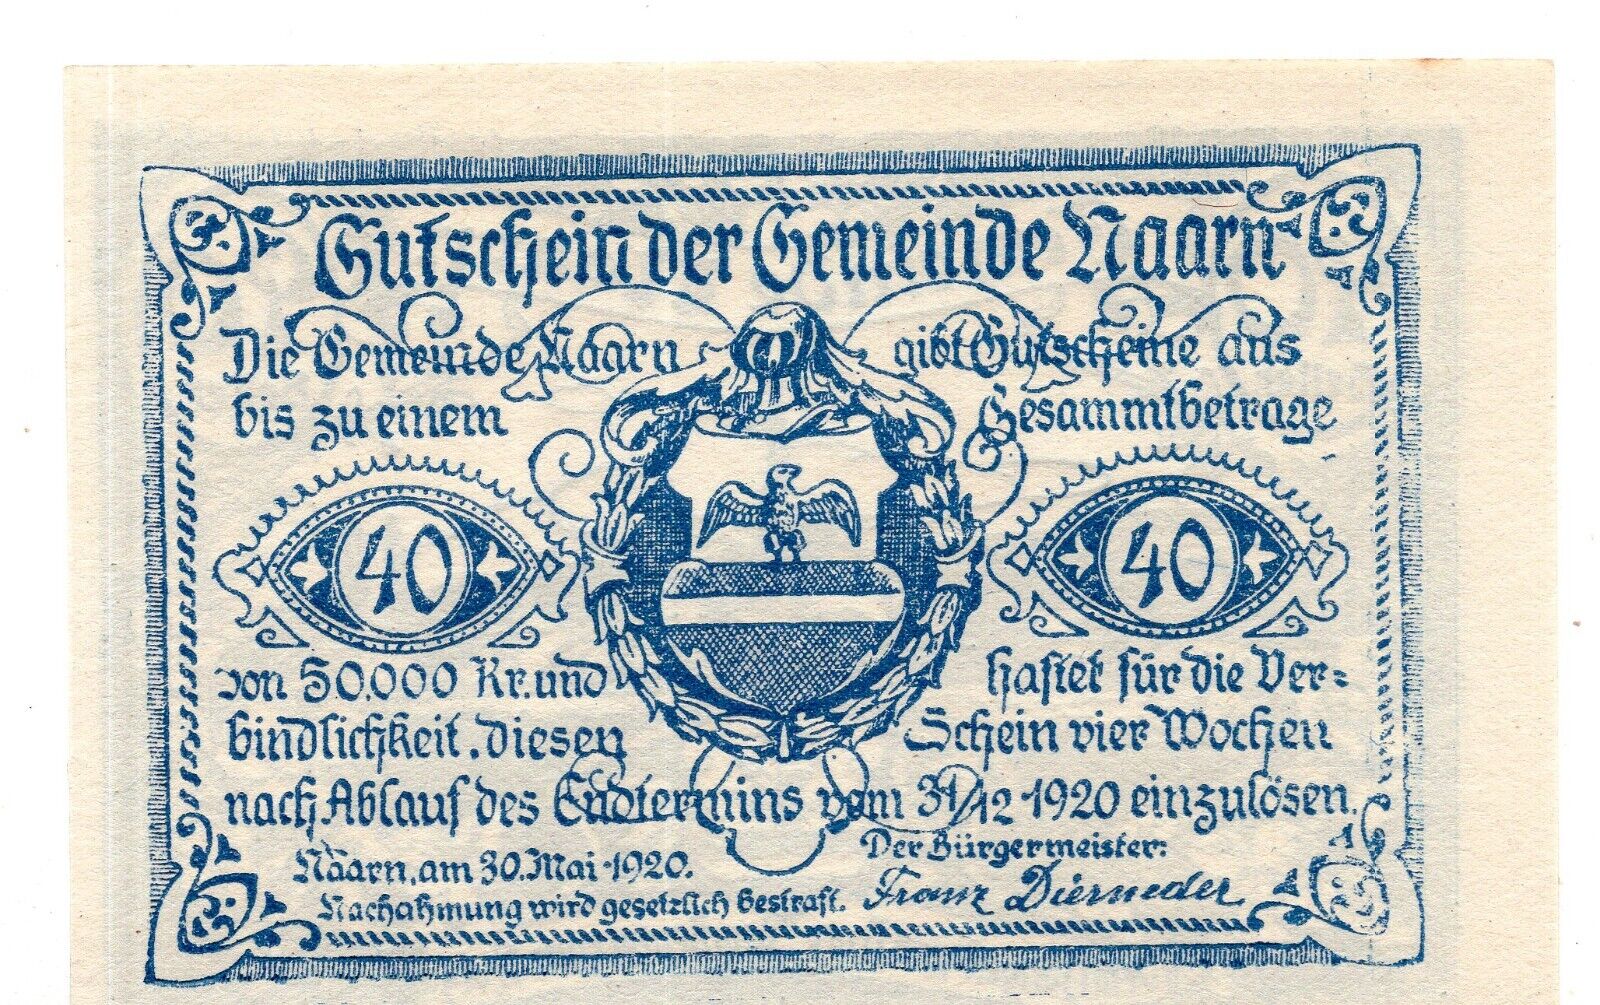 Gutschein der Gemeinde Naarn
Die Gemeinde Naarn gibt Gutscheine aus
bis zu einem Gesammtbetrage
40 40
von 50.000 Kr. und haftet für die Ver=
bindlichkeit, diesen Schein vier Wochen
nach Ablauf des Endtermins vom 31/12 1920 einzulösen.
Naarn, am 30. Mai 1920. Der Bürgermeister:
Nachahmung wird gesetzlich bestraft. Franz Diermeder